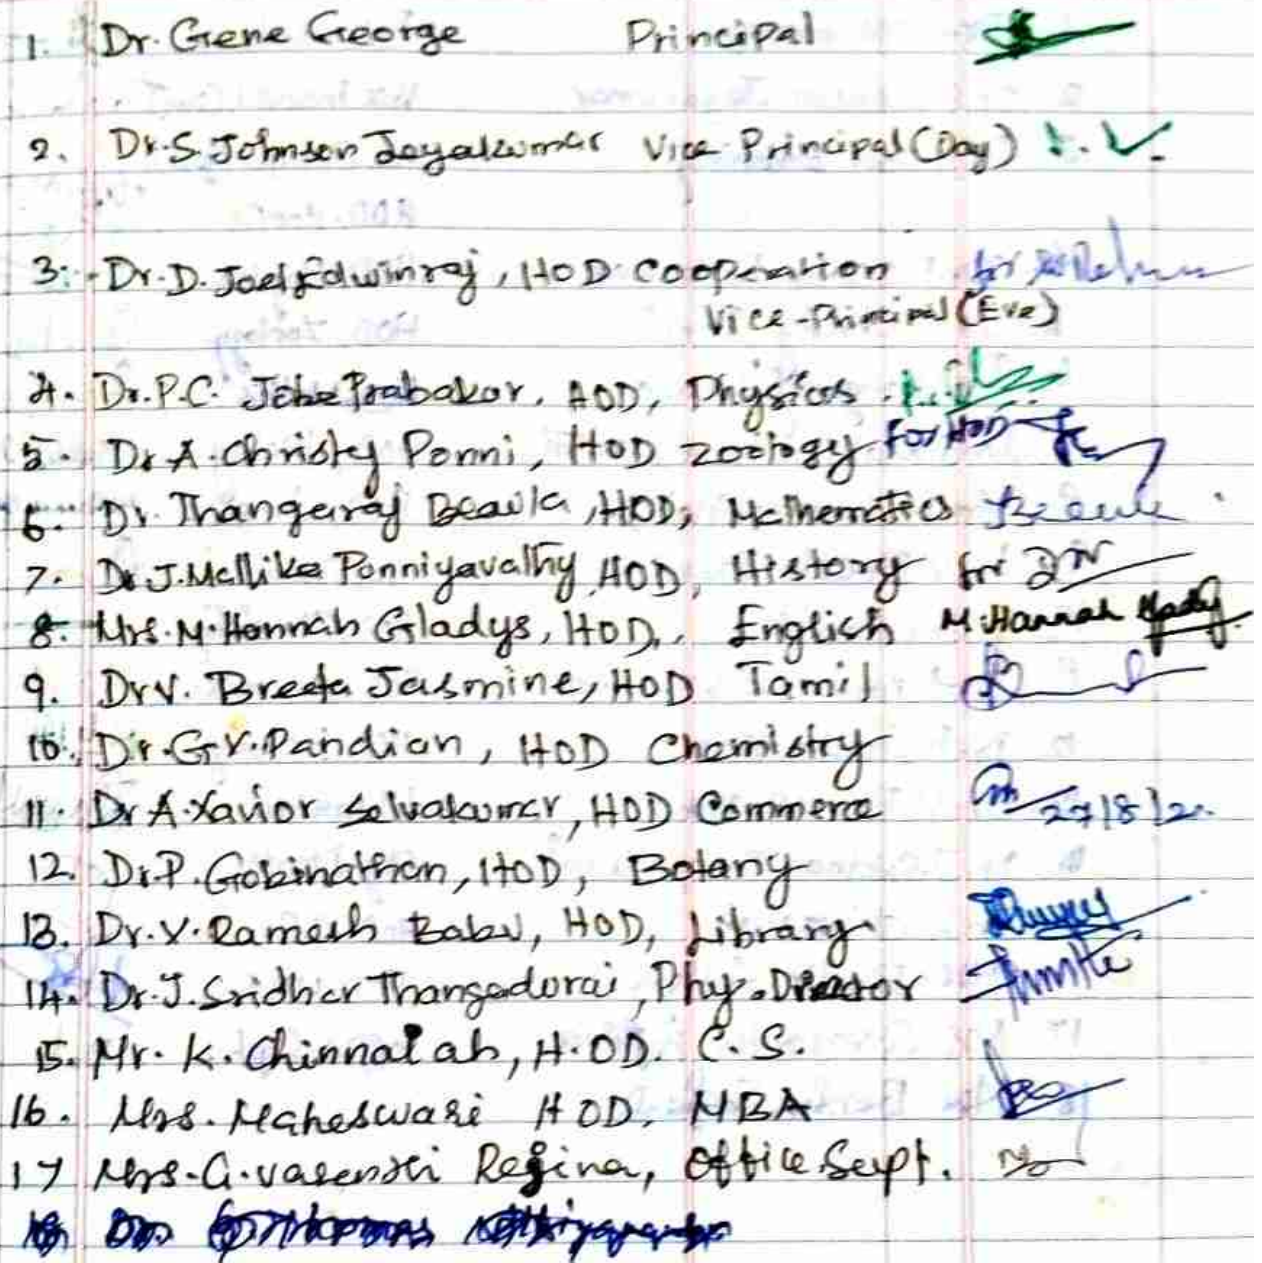 1. Dr. Gene George Principal
2. Dr. S. Johnson Jeyakumar Vice Principal (Day)
3. Dr. D. Joel Edwinraj, HOD Cooperation for
Vice-Principal (Eve)
4. Dr. P.C. Jeba Prabakar, HOD, Physics
5. Dr A. Christy Ponni, HOD Zoology For HOD
6. Dr. Thangaraj Beaula, HOD, Mathematics
7. Dr J. Mallika Ponniyavathy, HOD, History for
8. Mrs. M. Hannah Gladys, HOD, English M. Hannah Gladys
9. Dr V. Breeta Jasmine, HOD Tamil
10. Dr. G.V. Pandian, HOD Chemistry
11. Dr A. Xavior Selvakumar, HOD Commerce 27/8/2
12. Dr. P. Gobinathan, HOD, Botany
13. Dr. V. Ramesh Babu, HOD, Library
14. Dr. J. Sridhar Thangadurai, Phy. Director
15. Mr. K. Chinnaiah, H.OD. C.S.
16. Mrs. Maheswari HOD, MBA
17 Mrs. G. Vasenthi Regina, Office Supt.
18